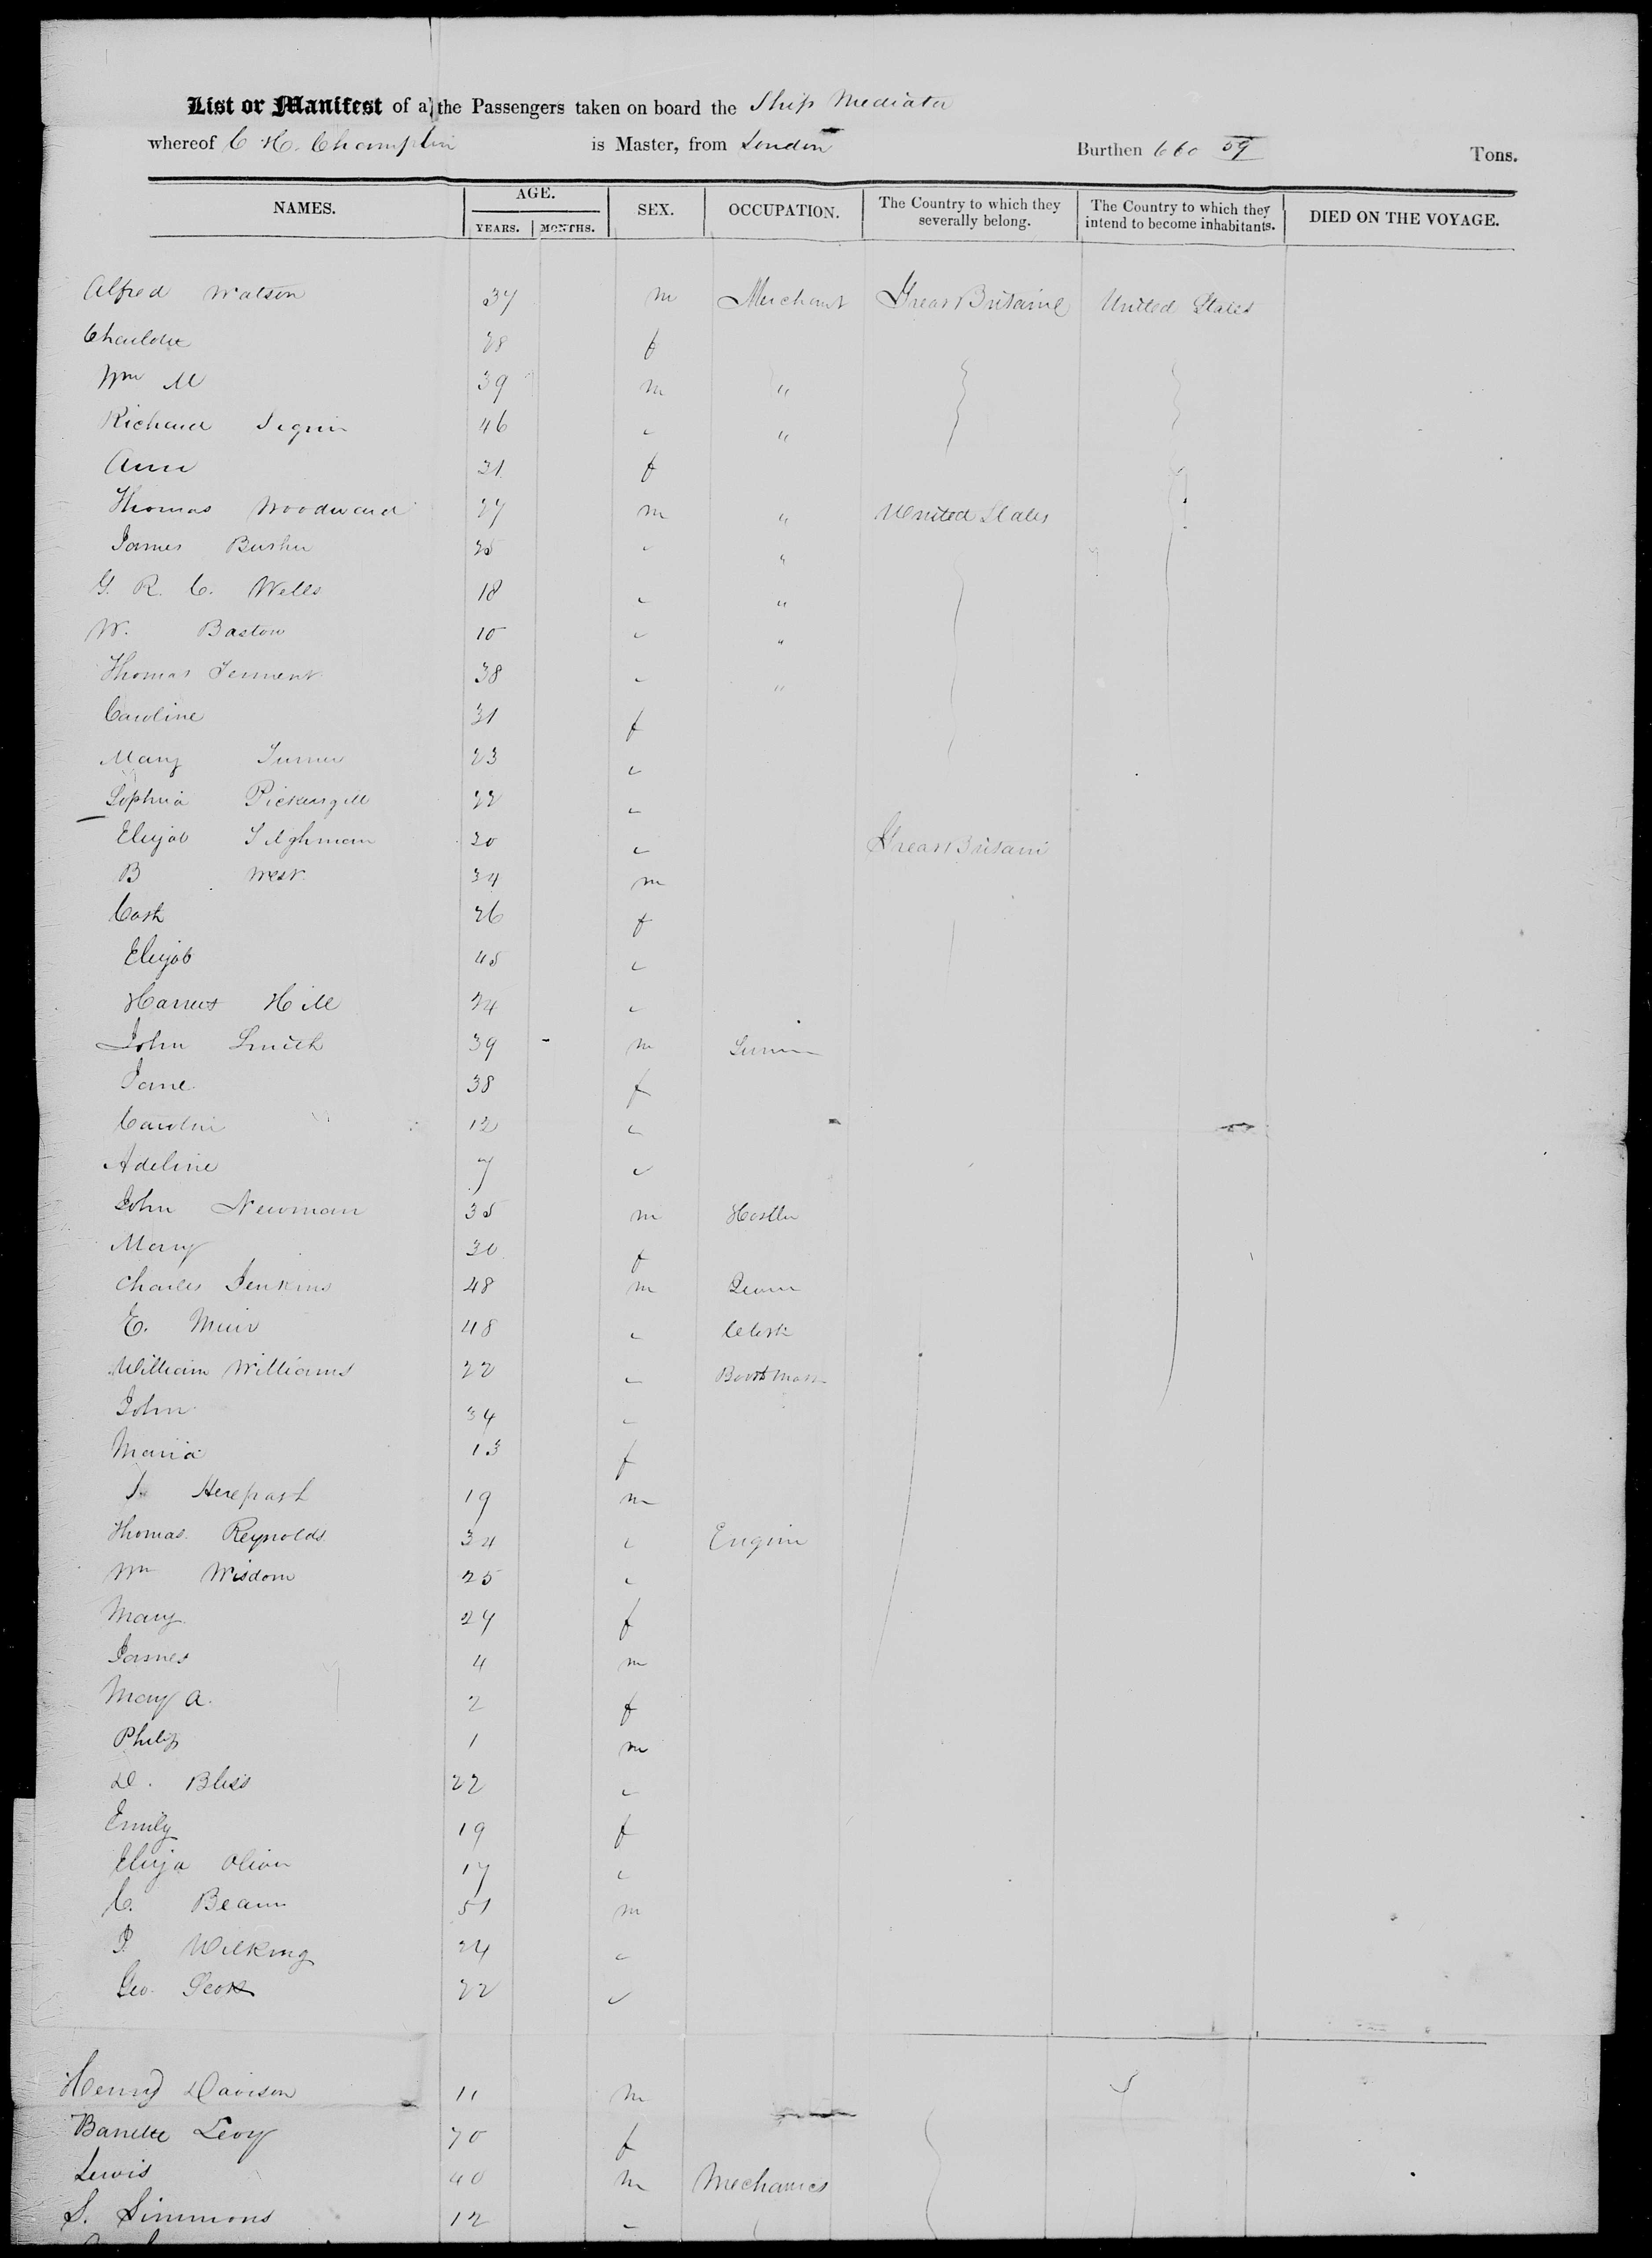 List or Manifest of all the Passengers taken on board the Ship Mediator
whereof C H. Champlin is Master, from London Burthen 660 59 Tons.
NAMES. AGE. SEX. OCCUPATION. The Country to which they severally belong. The Country to which they intend to become inhabitants. DIED ON THE VOYAGE.
YEARS. MONTHS.
Alfred Watson 37 m Merchant Great Britaine United States
28 f
Wm M 39 m "
Richard 46 " "
Ann 31 f
Thomas Woodward 27 m " United States
James 35 " "
G. R. C. Wells 18 " "
W. Baston 10 " "
Thomas 38 " "
Caroline 31 f
Mary Turner 23 "
Sophia Pickersgill 22 "
Tilghman 20 " Great Britain
B West 34 m
26 f
45 "
Harriet Hill 24 "
John Smith 39 - m
Jane 38 f
Carolin 12 "
Adeline 7 "
John Newman 35 m Hostler
Mary 30 f
Charles Jenkins 48 m
E. Muir 48 " Clerk
William Williams 22 " Bootman
John 34 "
Maria 13 f
19 m
Thomas Reynolds 34 " Engine
Wm Wisdom 25 "
Mary 24 f
James 4 m
Mary A. 2 f
Philip 1 m
D. Bliss 22 "
Emily 19 f
Eliza Oliver 17 "
C. Beam 51 m
J. Wilking 24 "
Geo. Scott 22 "
Henry Davison 11 m
Levy 70 f
Lewis 40 m Mechanics
S. Simmons 12 "